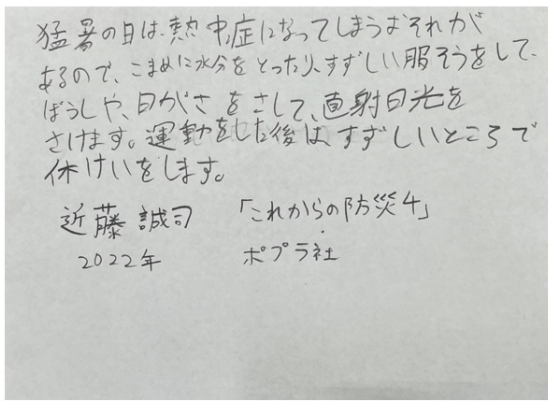 猛暑の日は、熱中症になってしまうおそれが
あるので、こまめに水分をとったり、すずしい服そうをして、
ぼうしや、日がさをさして、直射日光を
さけます。運動をした後は、すずしいところで
休けいをします。
近藤 誠司 「これからの防災4」
2022年 ポプラ社